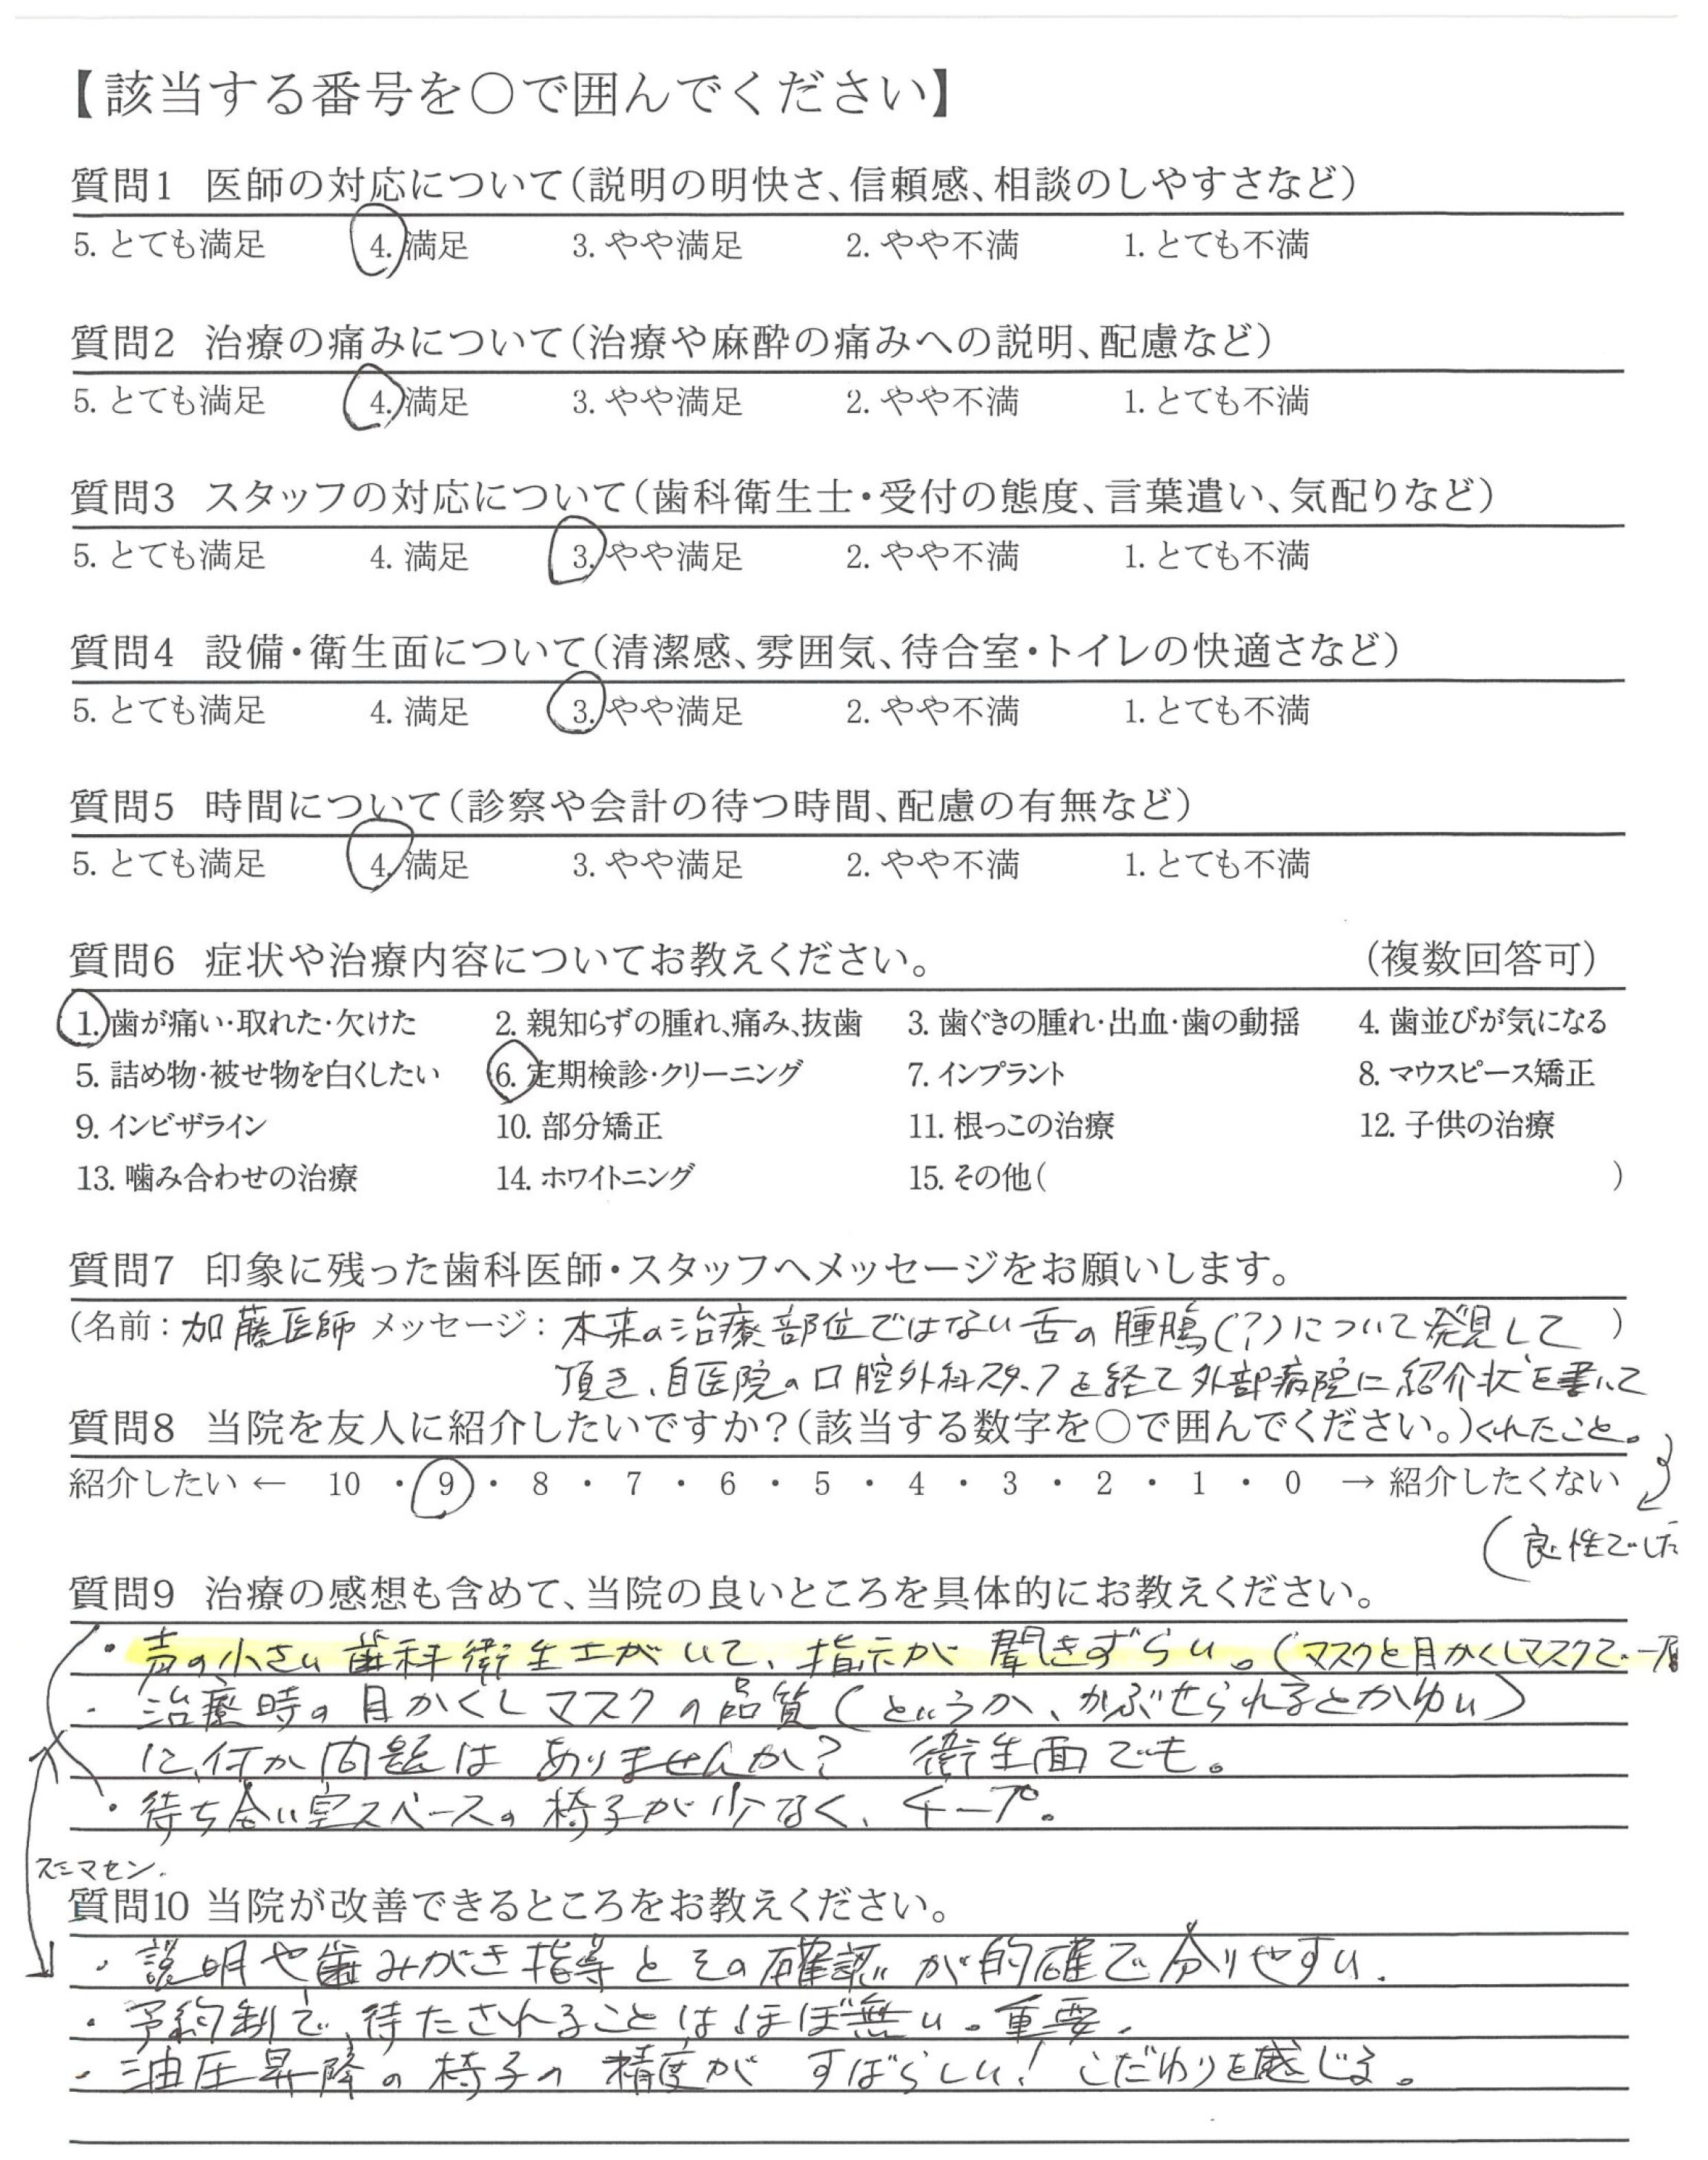 【該当する番号を〇で囲んでください】
質問1 医師の対応について(説明の明快さ、信頼感、相談のしやすさなど)
5. とても満足 4. 満足 3. やや満足 2. やや不満 1. とても不満
質問2 治療の痛みについて(治療や麻酔の痛みへの説明、配慮など)
5. とても満足 4. 満足 3. やや満足 2. やや不満 1. とても不満
質問3 スタッフの対応について(歯科衛生士・受付の態度、言葉遣い、気配りなど)
5. とても満足 4. 満足 3. やや満足 2. やや不満 1. とても不満
質問4 設備・衛生面について(清潔感、雰囲気、待合室・トイレの快適さなど)
5. とても満足 4. 満足 3. やや満足 2. やや不満 1. とても不満
質問5 時間について(診察や会計の待つ時間、配慮の有無など)
5. とても満足 4. 満足 3. やや満足 2. やや不満 1. とても不満
質問6 症状や治療内容についてお教えください。 (複数回答可)
1. 歯が痛い・取れた・欠けた 2. 親知らずの腫れ、痛み、抜歯 3. 歯ぐきの腫れ・出血・歯の動揺 4. 歯並びが気になる
5. 詰め物・被せ物を白くしたい 6. 定期検診・クリーニング 7. インプラント 8. マウスピース矯正
9. インビザライン 10. 部分矯正 11. 根っこの治療 12. 子供の治療
13. 噛み合わせの治療 14. ホワイトニング 15. その他( )
質問7 印象に残った歯科医師・スタッフへメッセージをお願いします。
(名前: 加藤医師 メッセージ: 本来の治療部位ではない舌の腫瘍(?)について発見して )
頂き、自医院の口腔外科スタッフを経て外部病院に紹介状を書いて
質問8 当院を友人に紹介したいですか?(該当する数字を〇で囲んでください。)くれたこと。
紹介したい ← 10 ・ 9 ・ 8 ・ 7 ・ 6 ・ 5 ・ 4 ・ 3 ・ 2 ・ 1 ・ 0 → 紹介したくない
(良性でした
質問9 治療の感想も含めて、当院の良いところを具体的にお教えください。
・声の小さい歯科衛生士がいて、指示が聞きずらい。(マスクと目かくしマスクで一層
・治療時の目かくしマスクの品質(というか、かぶせられるとかゆい)
に、何か問題はありませんか? 衛生面でも。
・待ち合い室スペースの椅子が少なく、チープ。
スミマセン.
質問10 当院が改善できるところをお教えください。
・説明や歯みがき指導とその確認が的確で分りやすい.
・予約制で、待たされることはほぼ無い。重要.
・油圧昇降の椅子の精度がすばらしい! こだわりを感じる。